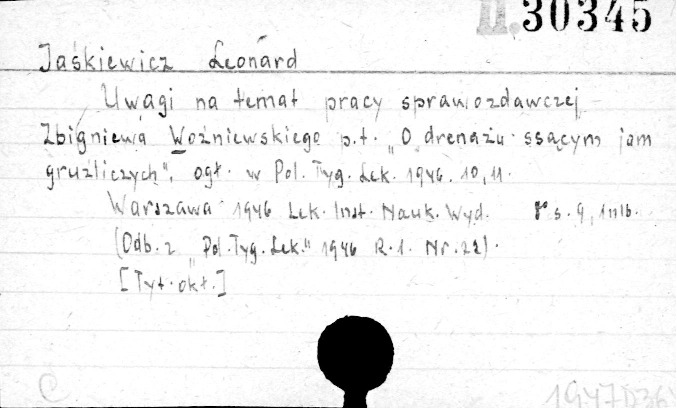 II.30345
Jaśkiewicz Leonard
Uwagi na temat pracy sprawozdawczej
Zbigniewa Woźniewskiego p.t. „O drenażu ssącym jam
gruźliczych", ogł. w Pol. Tyg. Lek. 1946. 10, 11.
Warszawa 1946 Lek. Inst. Nauk. Wyd. 8° s. 9, 1 nlb.
(Odb. z „Pol. Tyg. Lek." 1946 R. 1. Nr. 22).
[Tyt. okł.]
C